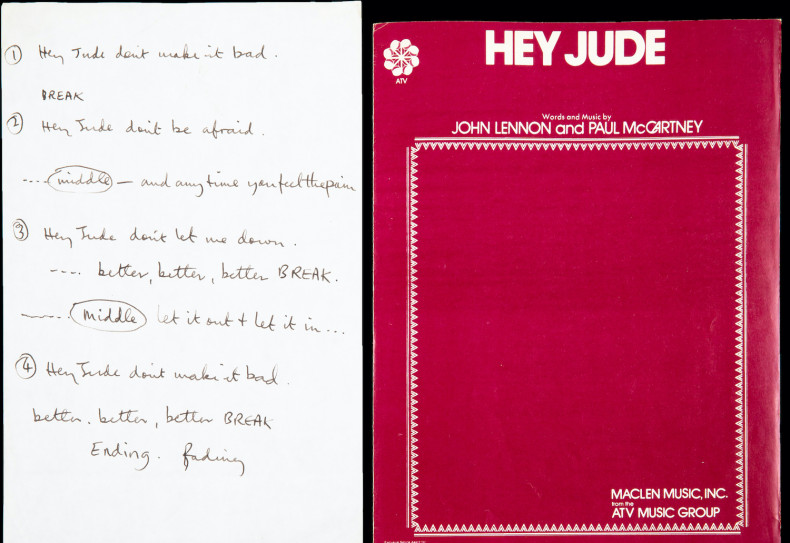 ① Hey Jude don't make it bad.
BREAK
② Hey Jude don't be afraid.
.... middle — and any time you feel the pain
③ Hey Jude don't let me down.
---. better, better, better BREAK.
middle let it out + let it in...
④ Hey Jude don't make it bad.
better. better, better BREAK
Ending. fading
HEY JUDE
ATV
Words and Music by
JOHN LENNON and PAUL McCARTNEY
MACLEN MUSIC, INC.
from the
ATV MUSIC GROUP